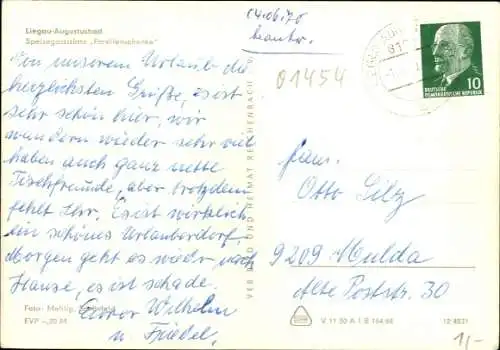 Liegau-Augustusbad
Speisegaststätte „Forellenschenke"
Von unserem Urlaub die
herzlichsten Grüße, es ist
sehr schön hier, wir
wandern wieder sehr viel
haben auch ganz nette
Tischfreunde, aber trotzdem
fehlt Ihr. Es ist wirklich
ein schönes Urlauberdorf
Morgen geht es wieder nach
Hause, es ist schade.
Euer Wilhelm
u. Friedel.
Foto:
EVP –,20 M
VEB BILD UND HEIMAT REICHENBACH
04.06.70
beantw.
01454
10
DEUTSCHE
DEMOKRATISCHE REPUBLIK
Fam.
Otto Silz
9209 Mulda
Alte Poststr. 30
V 11 50 A 1 B 164/68
12/4831
1,-